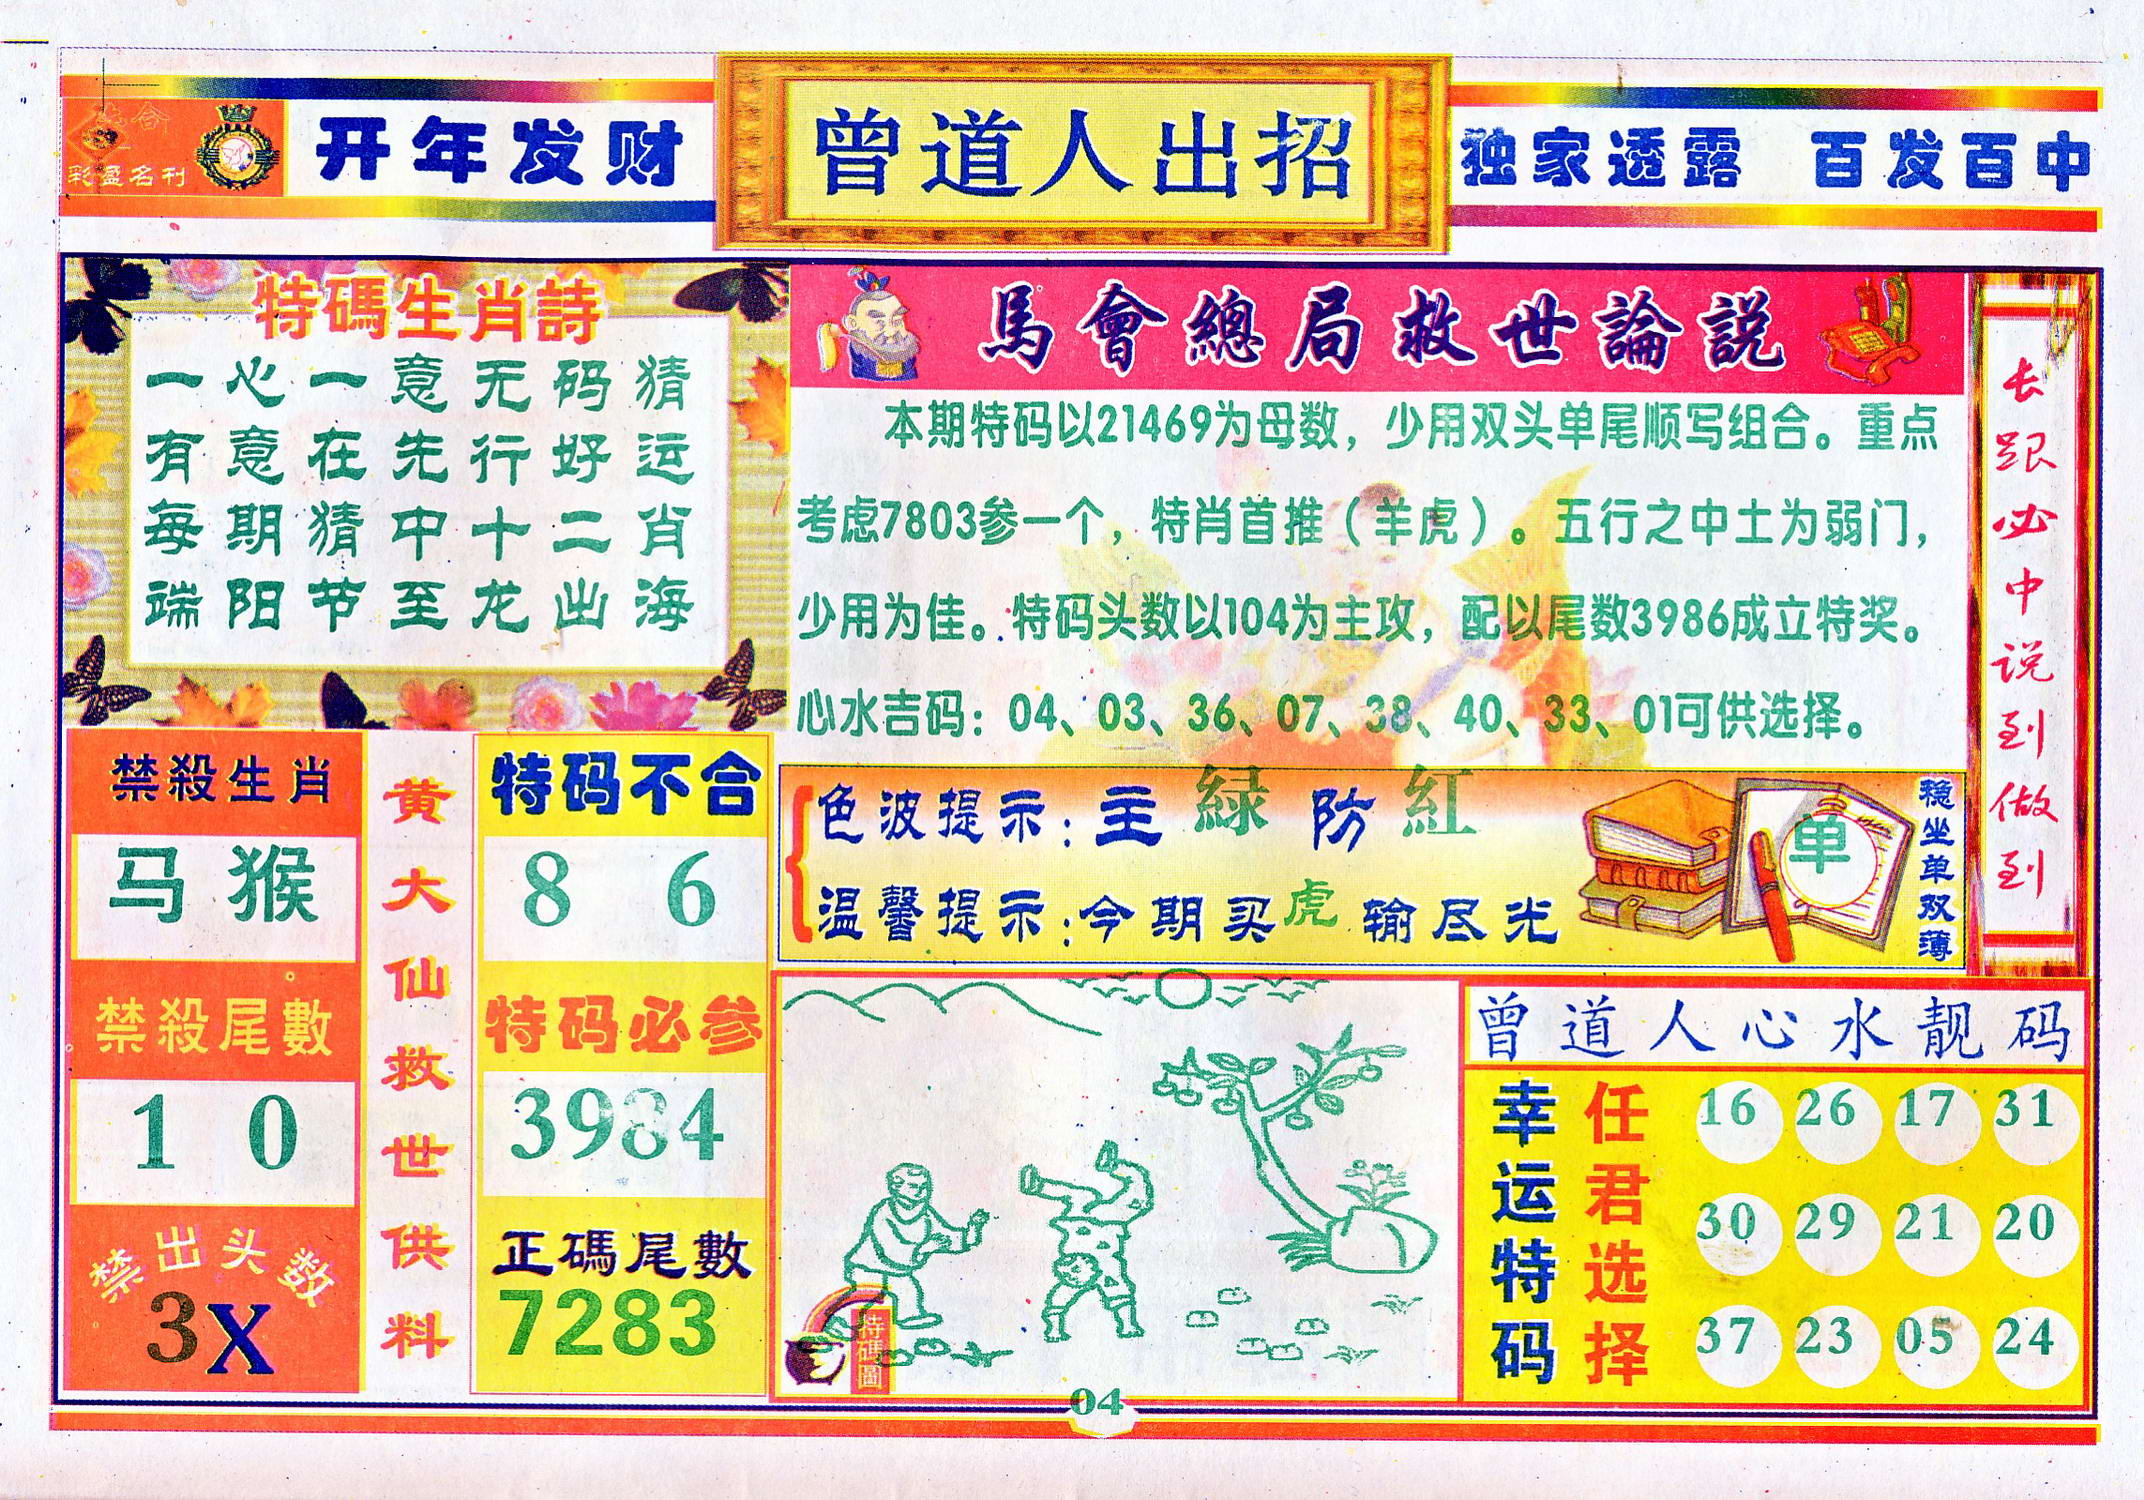 彩盈名刊
开年发财
曾道人出招
独家透露 百发百中
特碼生肖詩
一心一意无码猜
有意在先行好运
每期猜中十二肖
端阳节至龙出海
馬會總局救世論説
本期特码以21469为母数，少用双头单尾顺写组合。重点
考虑7803参一个，特肖首推（羊虎）。五行之中土为弱门，
少用为佳。特码头数以104为主攻，配以尾数3986成立特奖。
心水吉码：04、03、36、07、38、40、33、01可供选择。
长跟必中说到做到
禁殺生肖
马 猴
禁殺尾數
1 0
禁出头数
3X
黄大仙救世供料
特码不合
8 6
特码必参
3984
正碼尾數
7283
色波提示：主緑防紅
温馨提示：今期买虎输尽光
单
稳坐单双薄
特碼圖
曾道人心水靓码
幸运特码
任君选择
16 26 17 31
30 29 21 20
37 23 05 24
04